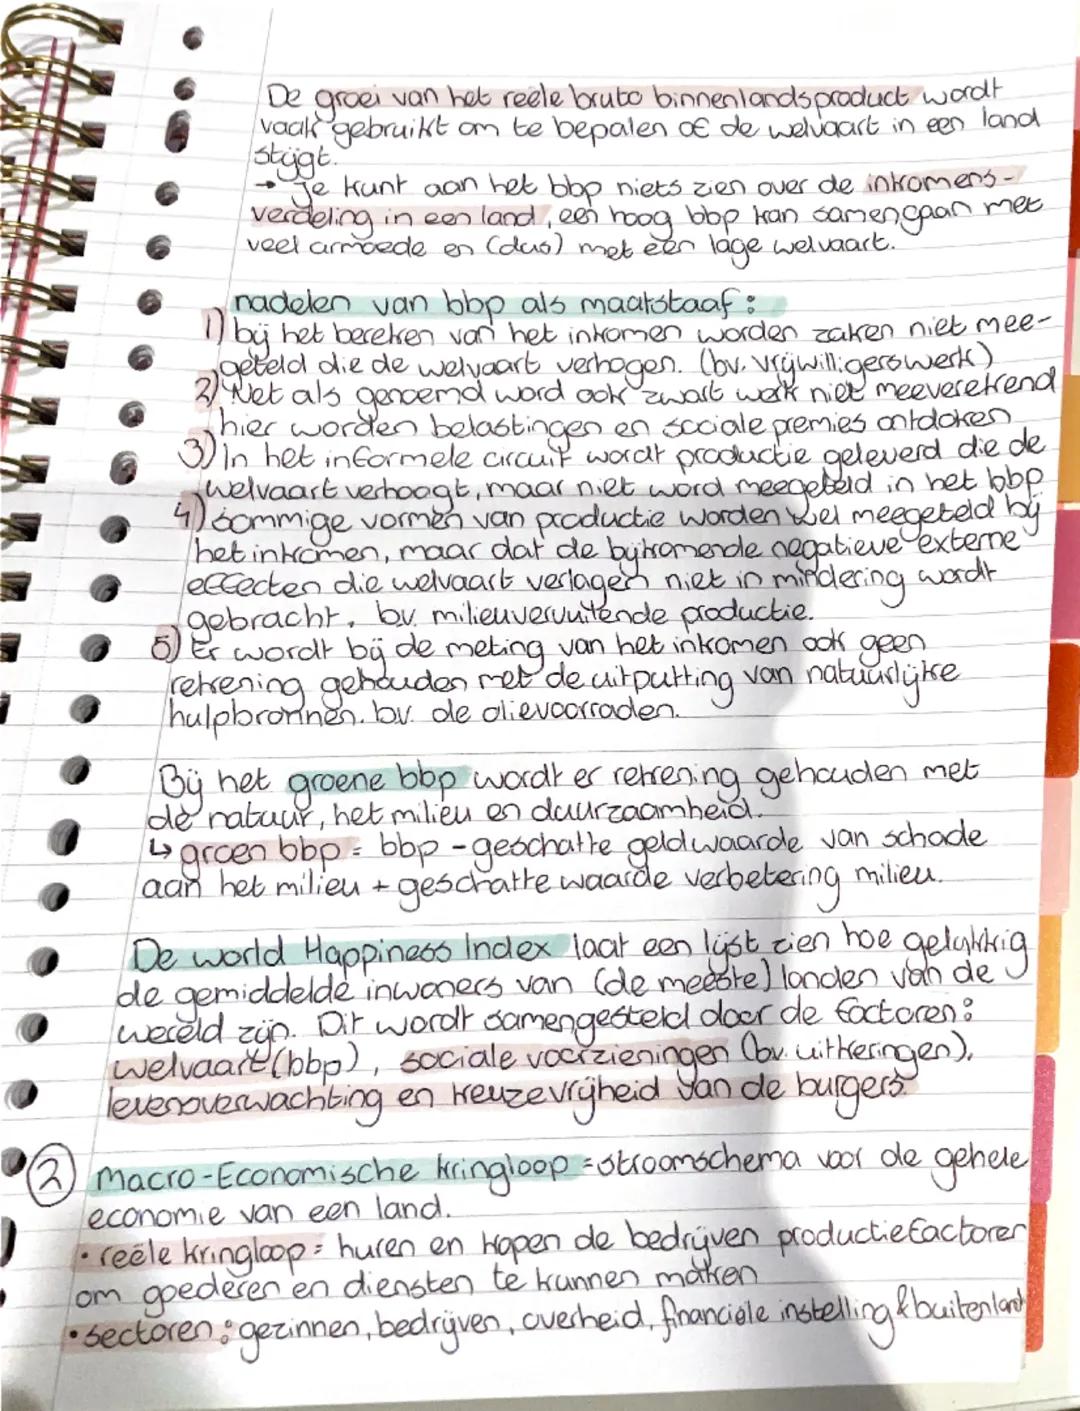 De groei van het reële bruto binnenlandsproduct wordt
vaak gebruikt om te bepalen of de welvaart in een land
stijgt.
→ Je kunt aan het bbp niets zien over de inkomens-
verdeling in een land, een hoog bbp kan samengaan met
veel armoede en (dus) met een lage welvaart.
nadelen van bbp als maatstaaf:
1) bij het bereken van het inkomen worden zaken niet mee-
geteld die de welvaart verhogen. (bv. vrijwilligerswerk)
2) Net als genoemd word ook zwart werk niet meeverekend
hier worden belastingen en sociale premies ontdoken
3) In het informele circuit wordt productie geleverd die de
welvaart verhoogt, maar niet word meegeteld in het bbp
4) Sommige vormen van productie worden wel meegeteld bij
het inkomen, maar dat de bijkomende negatieve externe
effecten die welvaart verlagen niet in mindering wordt
gebracht. bv. milieuvervuilende productie.
5) Er wordt bij de meting van het inkomen ook geen
rekening gehouden met de uitputting van natuurlijke
hulpbronnen. bv. de olievoorraden.
Bij het groene bbp wordt er rekening gehouden met
de natuur, het milieu en duurzaamheid.
↳ groen bbp = bbp - geschatte geldwaarde van schade
aan het milieu + geschatte waarde verbetering milieu.
De world Happiness Index laat een lijst zien hoe gelukkig
de gemiddelde inwoners van (de meeste) landen van de
wereld zijn. Dit wordt samengesteld door de factoren:
welvaart (bbp), sociale voorzieningen (bv. uitkeringen),
levensverwachting en keuzevrijheid van de burgers.
2 Macro-Economische kringloop = stroomschema voor de gehele
economie van een land.
• reële kringloop = huren en kopen de bedrijven productiefactoren
om goederen en diensten te kunnen maken
• sectoren: gezinnen, bedrijven, overheid, financiële instelling & buitenland